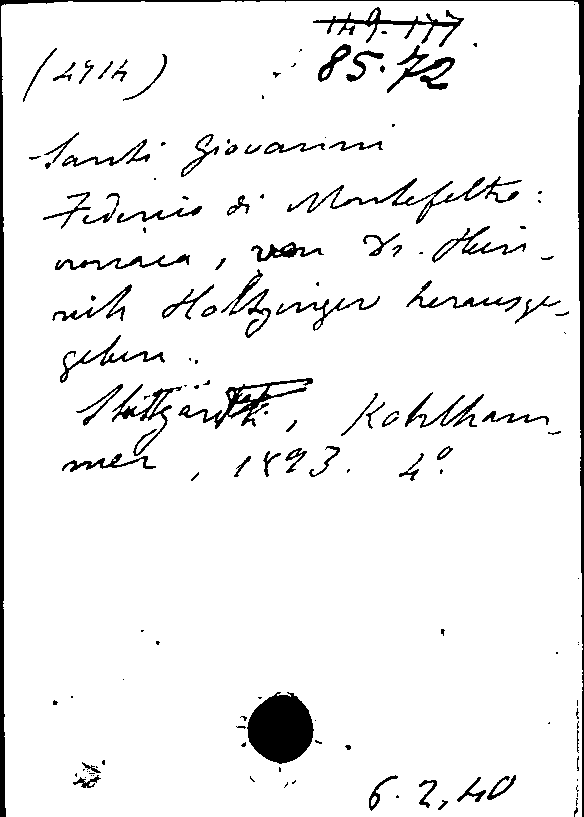 149.177
(4714) 85.72
Santi Giovanni
Federico di Montefeltro:
cronaca, von Dr. Hein-
rich Holtzinger herausge-
geben.
Stuttgart, Kohlham-
mer, 1893. 4º.
6.2.40